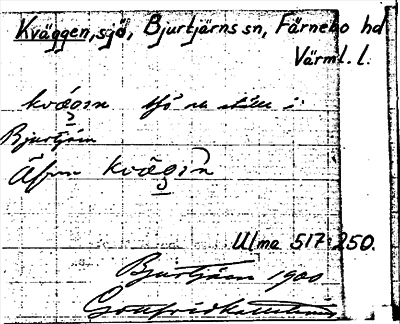 Kväggen, sjö, Bjurtjärns sn, Färnebo hd
Värml. l.
sjö
i
Bjurtjärn
Äfven
Ulma 517:250.
Bjurtjärn 1900
Gottfrid Kallstenius